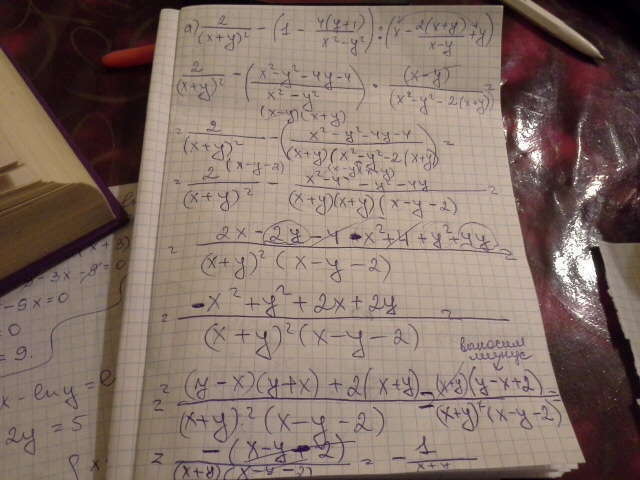 а) 2/(x+y)² - (1 - 4(y+1)/(x²-y²)) : (x - 2(x+y)/(x-y) + y)
2/(x+y)² - ((x²-y²-4y-4)/(x²-y²)) · (x-y)/(x²-y²-2(x+y)) =
(x-y)(x+y)
= 2/(x+y)² - (x²-y²-4y-4)/((x+y)(x²-y²-2(x+y))) =
= 2(x-y-2)/(x+y)² - /((x+y)(x+y)(x-y-2)) =
= (2x-2y-4-x²+4+y²+4y)/((x+y)²(x-y-2)) =
= (-x²+y²+2x+2y)/((x+y)²(x-y-2)) =
выносим
минус
= ((y-x)(y+x)+2(x+y))/((x+y)²(x-y-2)) = (x+y)(y-x+2)/((x+y)²(x-y-2)) =
= -(x-y-2)/((x+y)(x-y-2)) = -1/(x+y)
x+3)
-3x-9=0
-5x=0
=0
=9.
x-ln y=
2y=5